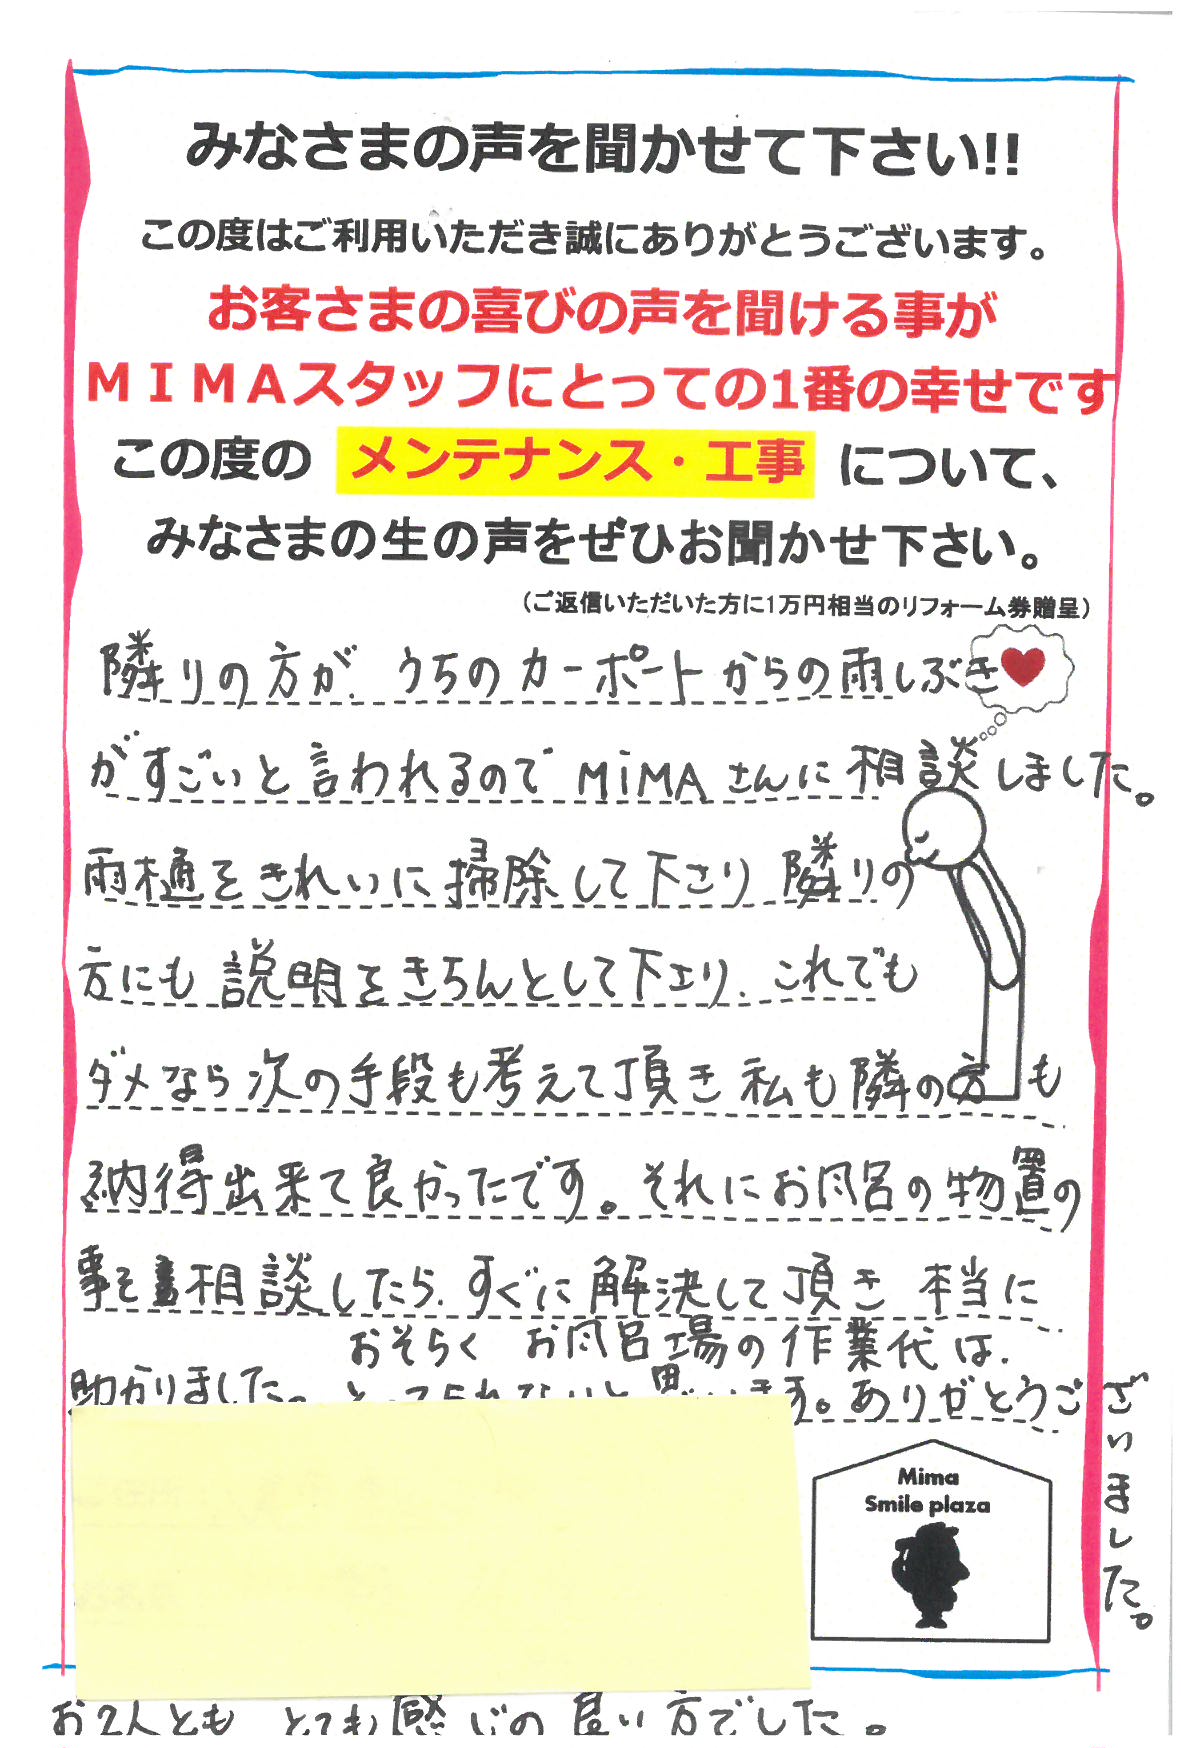 みなさまの声を聞かせて下さい!!
この度はご利用いただき誠にありがとうございます。
お客さまの喜びの声を聞ける事が
MIMAスタッフにとっての1番の幸せです
この度の メンテナンス・工事 について、
みなさまの生の声をぜひお聞かせ下さい。
(ご返信いただいた方に1万円相当のリフォーム券贈呈)
隣りの方が、うちのカーポートからの雨しぶき
がすごいと言われるのでMiMAさんに相談しました。
雨樋をきれいに掃除して下さり 隣りの
方にも説明をきちんとして下さり、これでも
ダメなら次の手段も考えて頂き私も隣の方も
納得出来て良かったです。それにお風呂の物置の
事を相談したら、すぐに解決して頂き 本当に
おそらく お風呂場の作業代は、
助かりました。とってられないと思います。ありがとうございました。
Mima
Smile plaza
お2人とも とても感じの良い方でした。